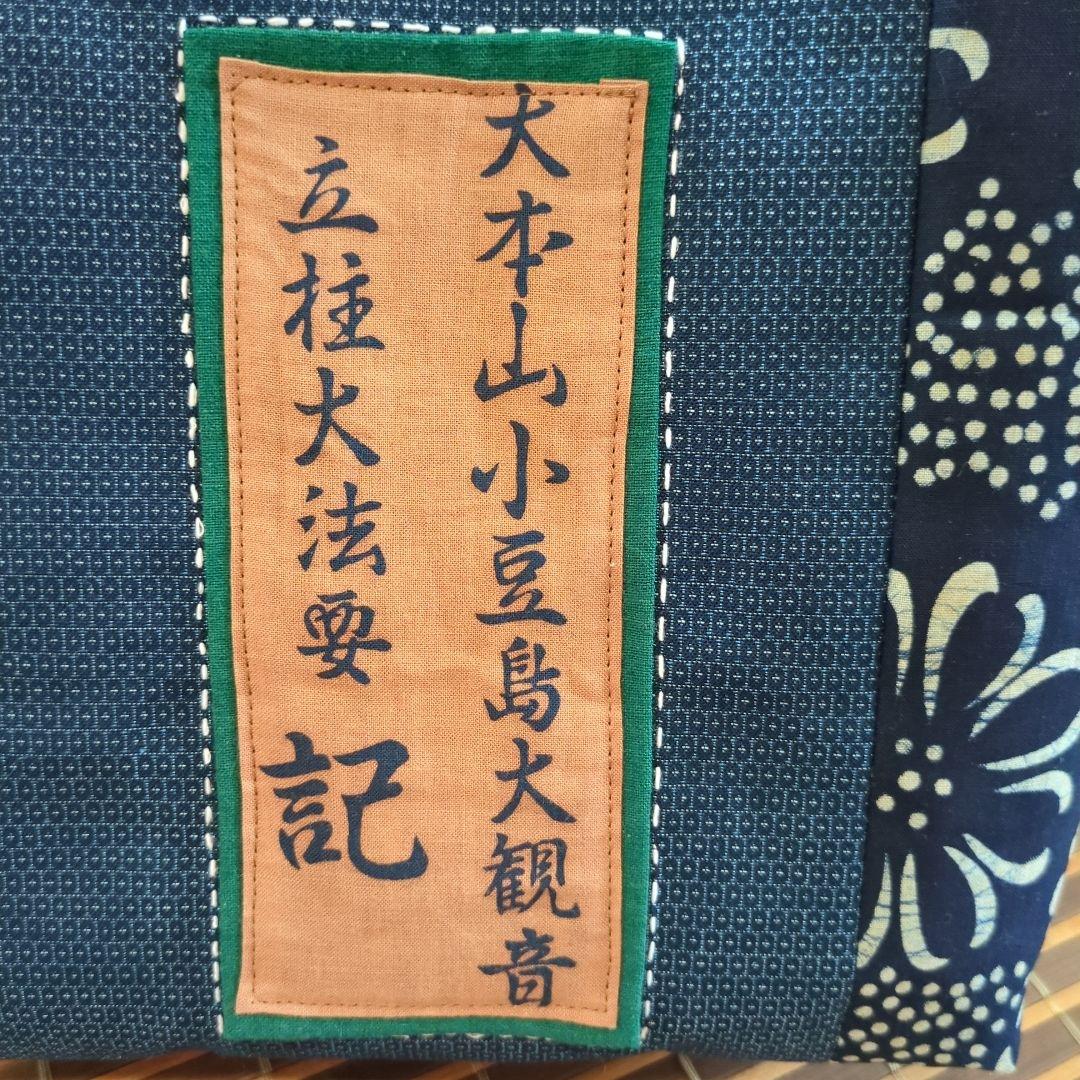 大本山小豆島大観音
立柱大法要記